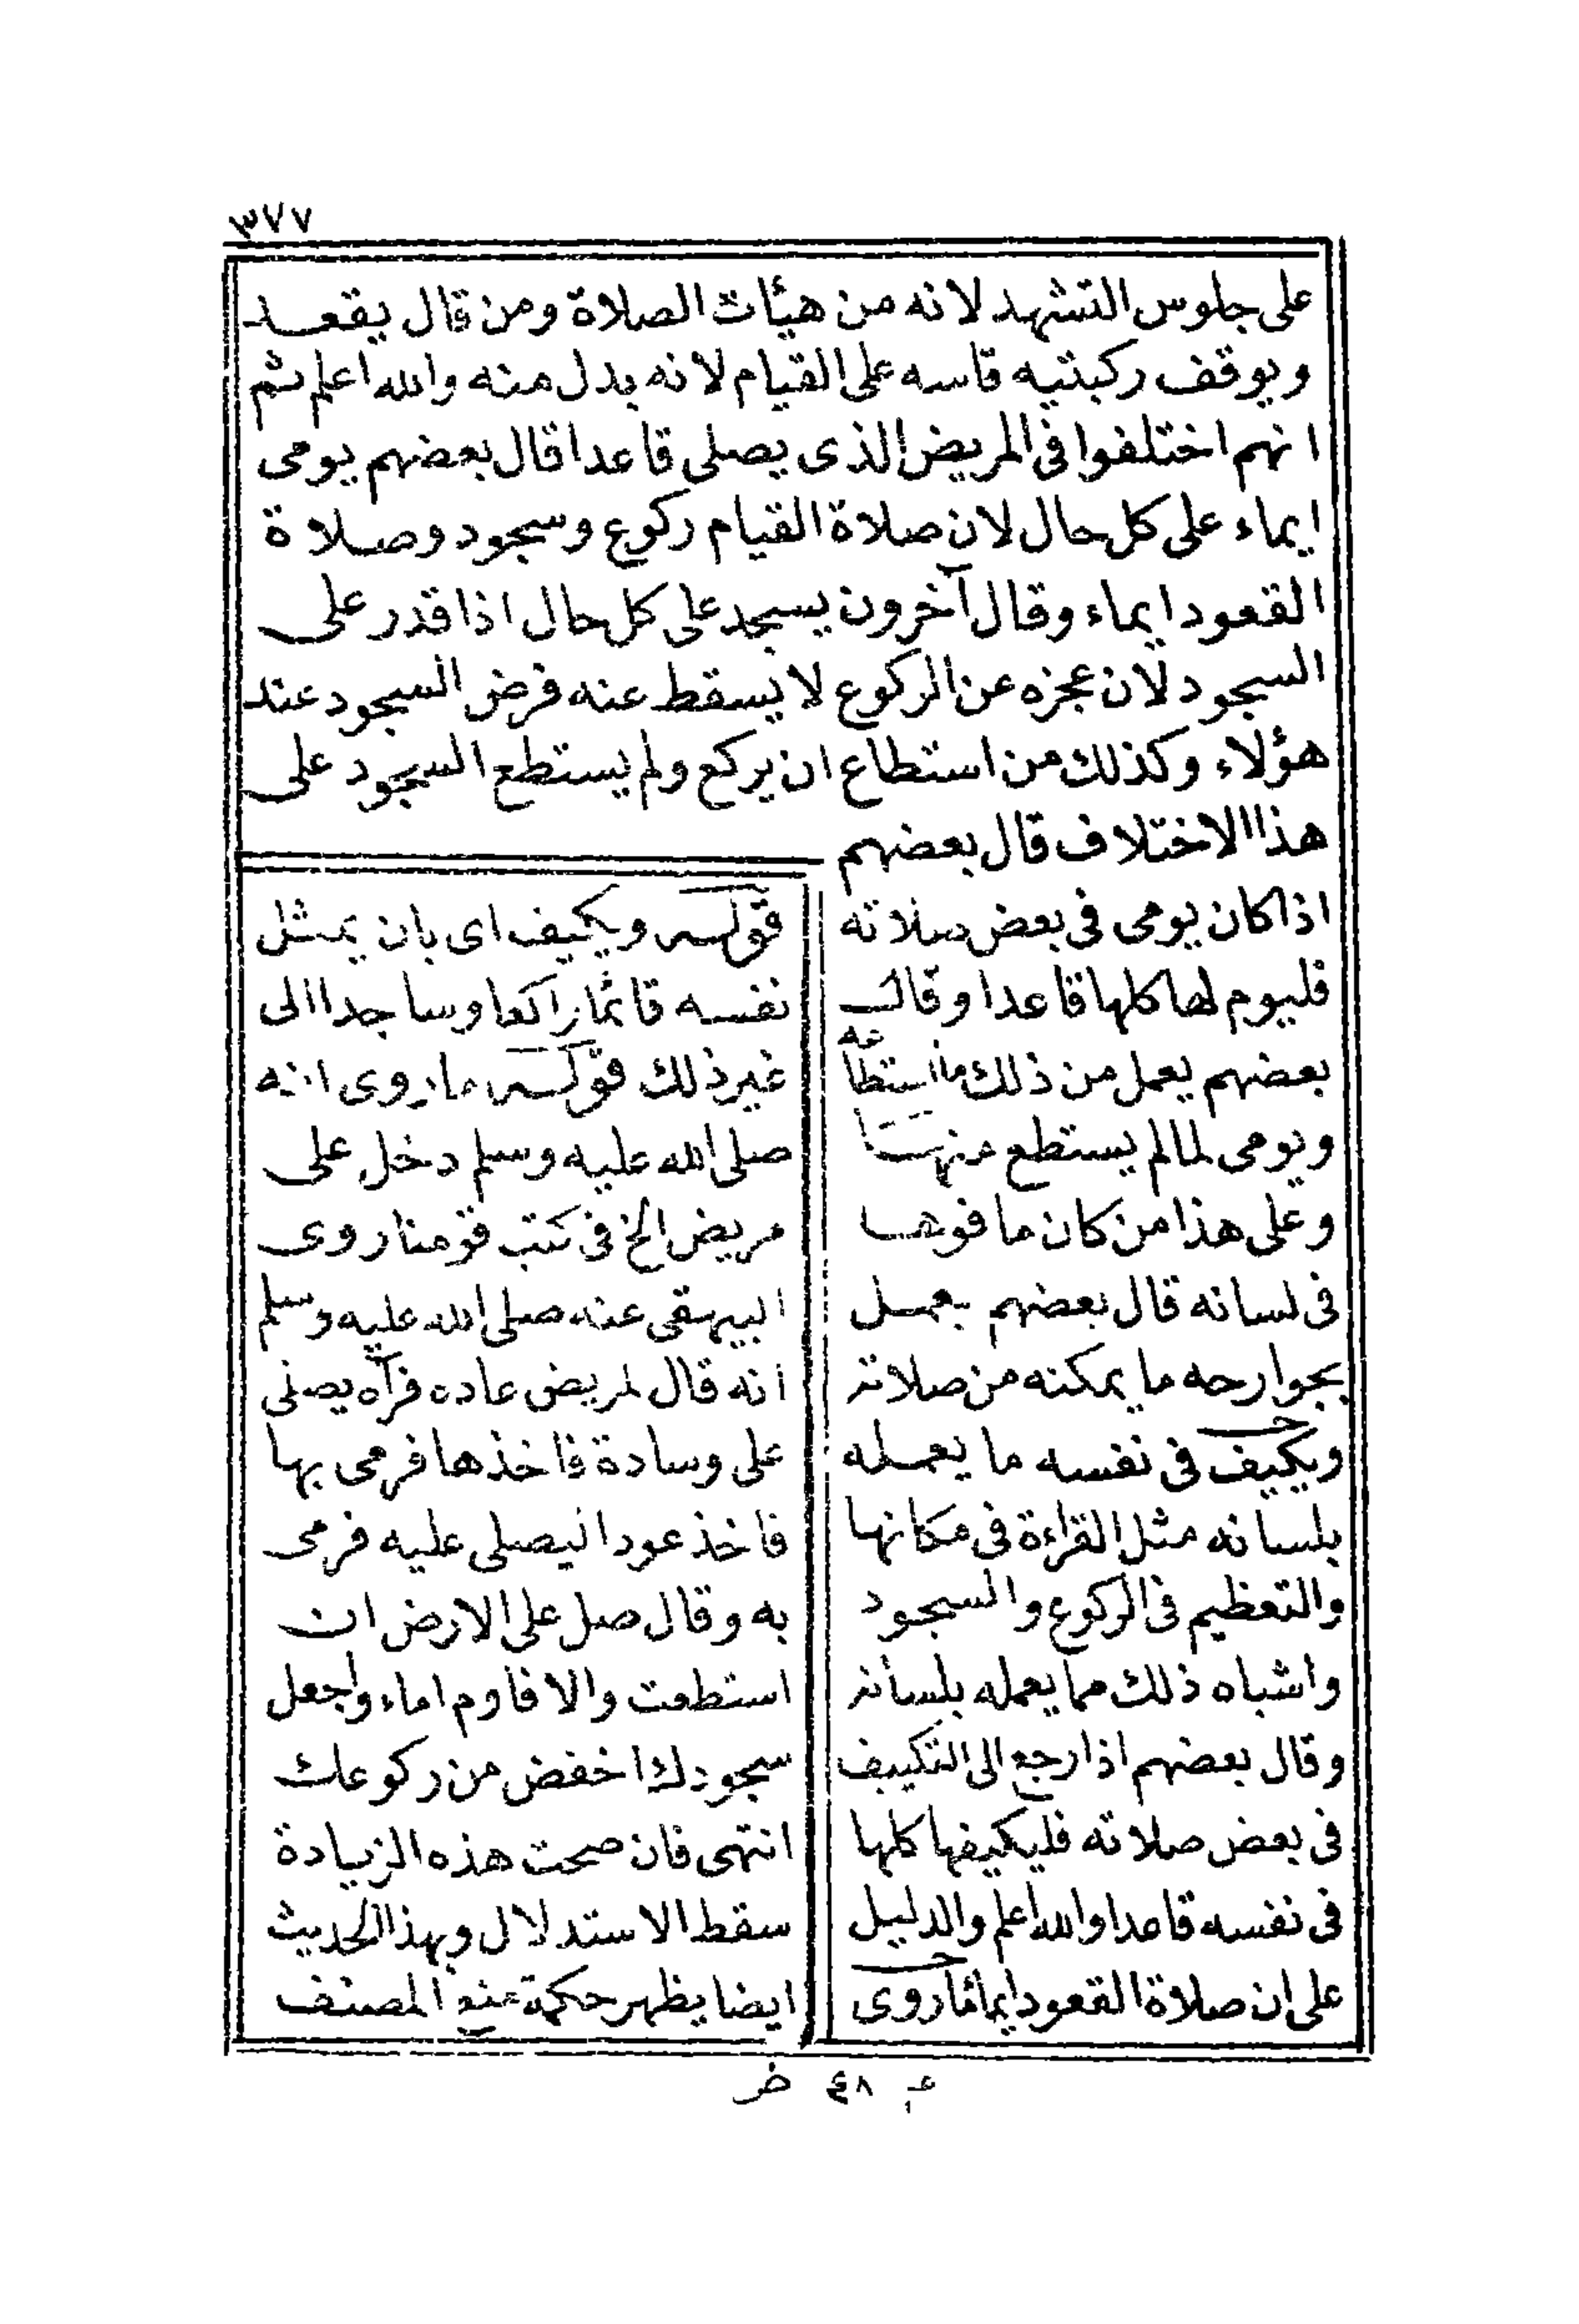 ٣٧٧
على جلوس التشهد لانه من هيئات الصلاة ومن قال يقعد
ويوقف ركبتيه قاسه على القيام لانه بدل منه والله اعلم ثم
انهم اختلفوا فى المريض الذى يصلى قاعدا قال بعضهم يومى
ايماء على كل حال لان صلاة القيام ركوع وسجود وصلاة
القعود ايماء وقال آخرون يسجد على كل حال اذا قدر على
السجود لان عجزه عن الركوع لا يسقط عنه فرض السجود عند
هؤلاء وكذلك من استطاع ان يركع ولم يستطع السجود على
هذا الاختلاف قال بعضهم
اذا كان يومى فى بعض صلاته
فليوم لها كلها قاعدا وقال
بعضهم يعمل من ذلك ما استطاعه
ويومى لما لم يستطع منها
وعلى هذا من كان ما فوها
فى لسانه قال بعضهم يعمل
بجوارحه ما يمكنه من صلاته
ويكيف فى نفسه ما يعمله
بلسانه مثل القراءة فى مكانها
والتعظيم فى الركوع والسجود
واشباه ذلك مما يعمله بلسانه
وقال بعضهم اذا رجع الى التكييف
فى بعض صلاته فليكيفها كلها
فى نفسه قاعدا والله اعلم والدليل
على ان صلاة القعود ايما ما روى
قوله ويكيف اى بان يمثل
نفسه قائما راكعا وساجدا الى
غير ذلك قوله ما روى انه
صلى الله عليه وسلم دخل على
مريض الخ فى كتب قومنا روى
البيهقى عنه صلى الله عليه وسلم
انه قال لمريض عاده فرآه يصلى
على وسادة فاخذها فرمى بها
فاخذ عودا ليصلى عليه فرمى
به وقال صل على الارض ان
استطعت والا فاوم اماء واجعل
سجودك اخفض من ركوعك
انتهى فان صحت هذه الزيادة
سقط الاستدلال وبهذا الحديث
ايضا يظهر حكمة منع المصنف
م ٤٨ ضر